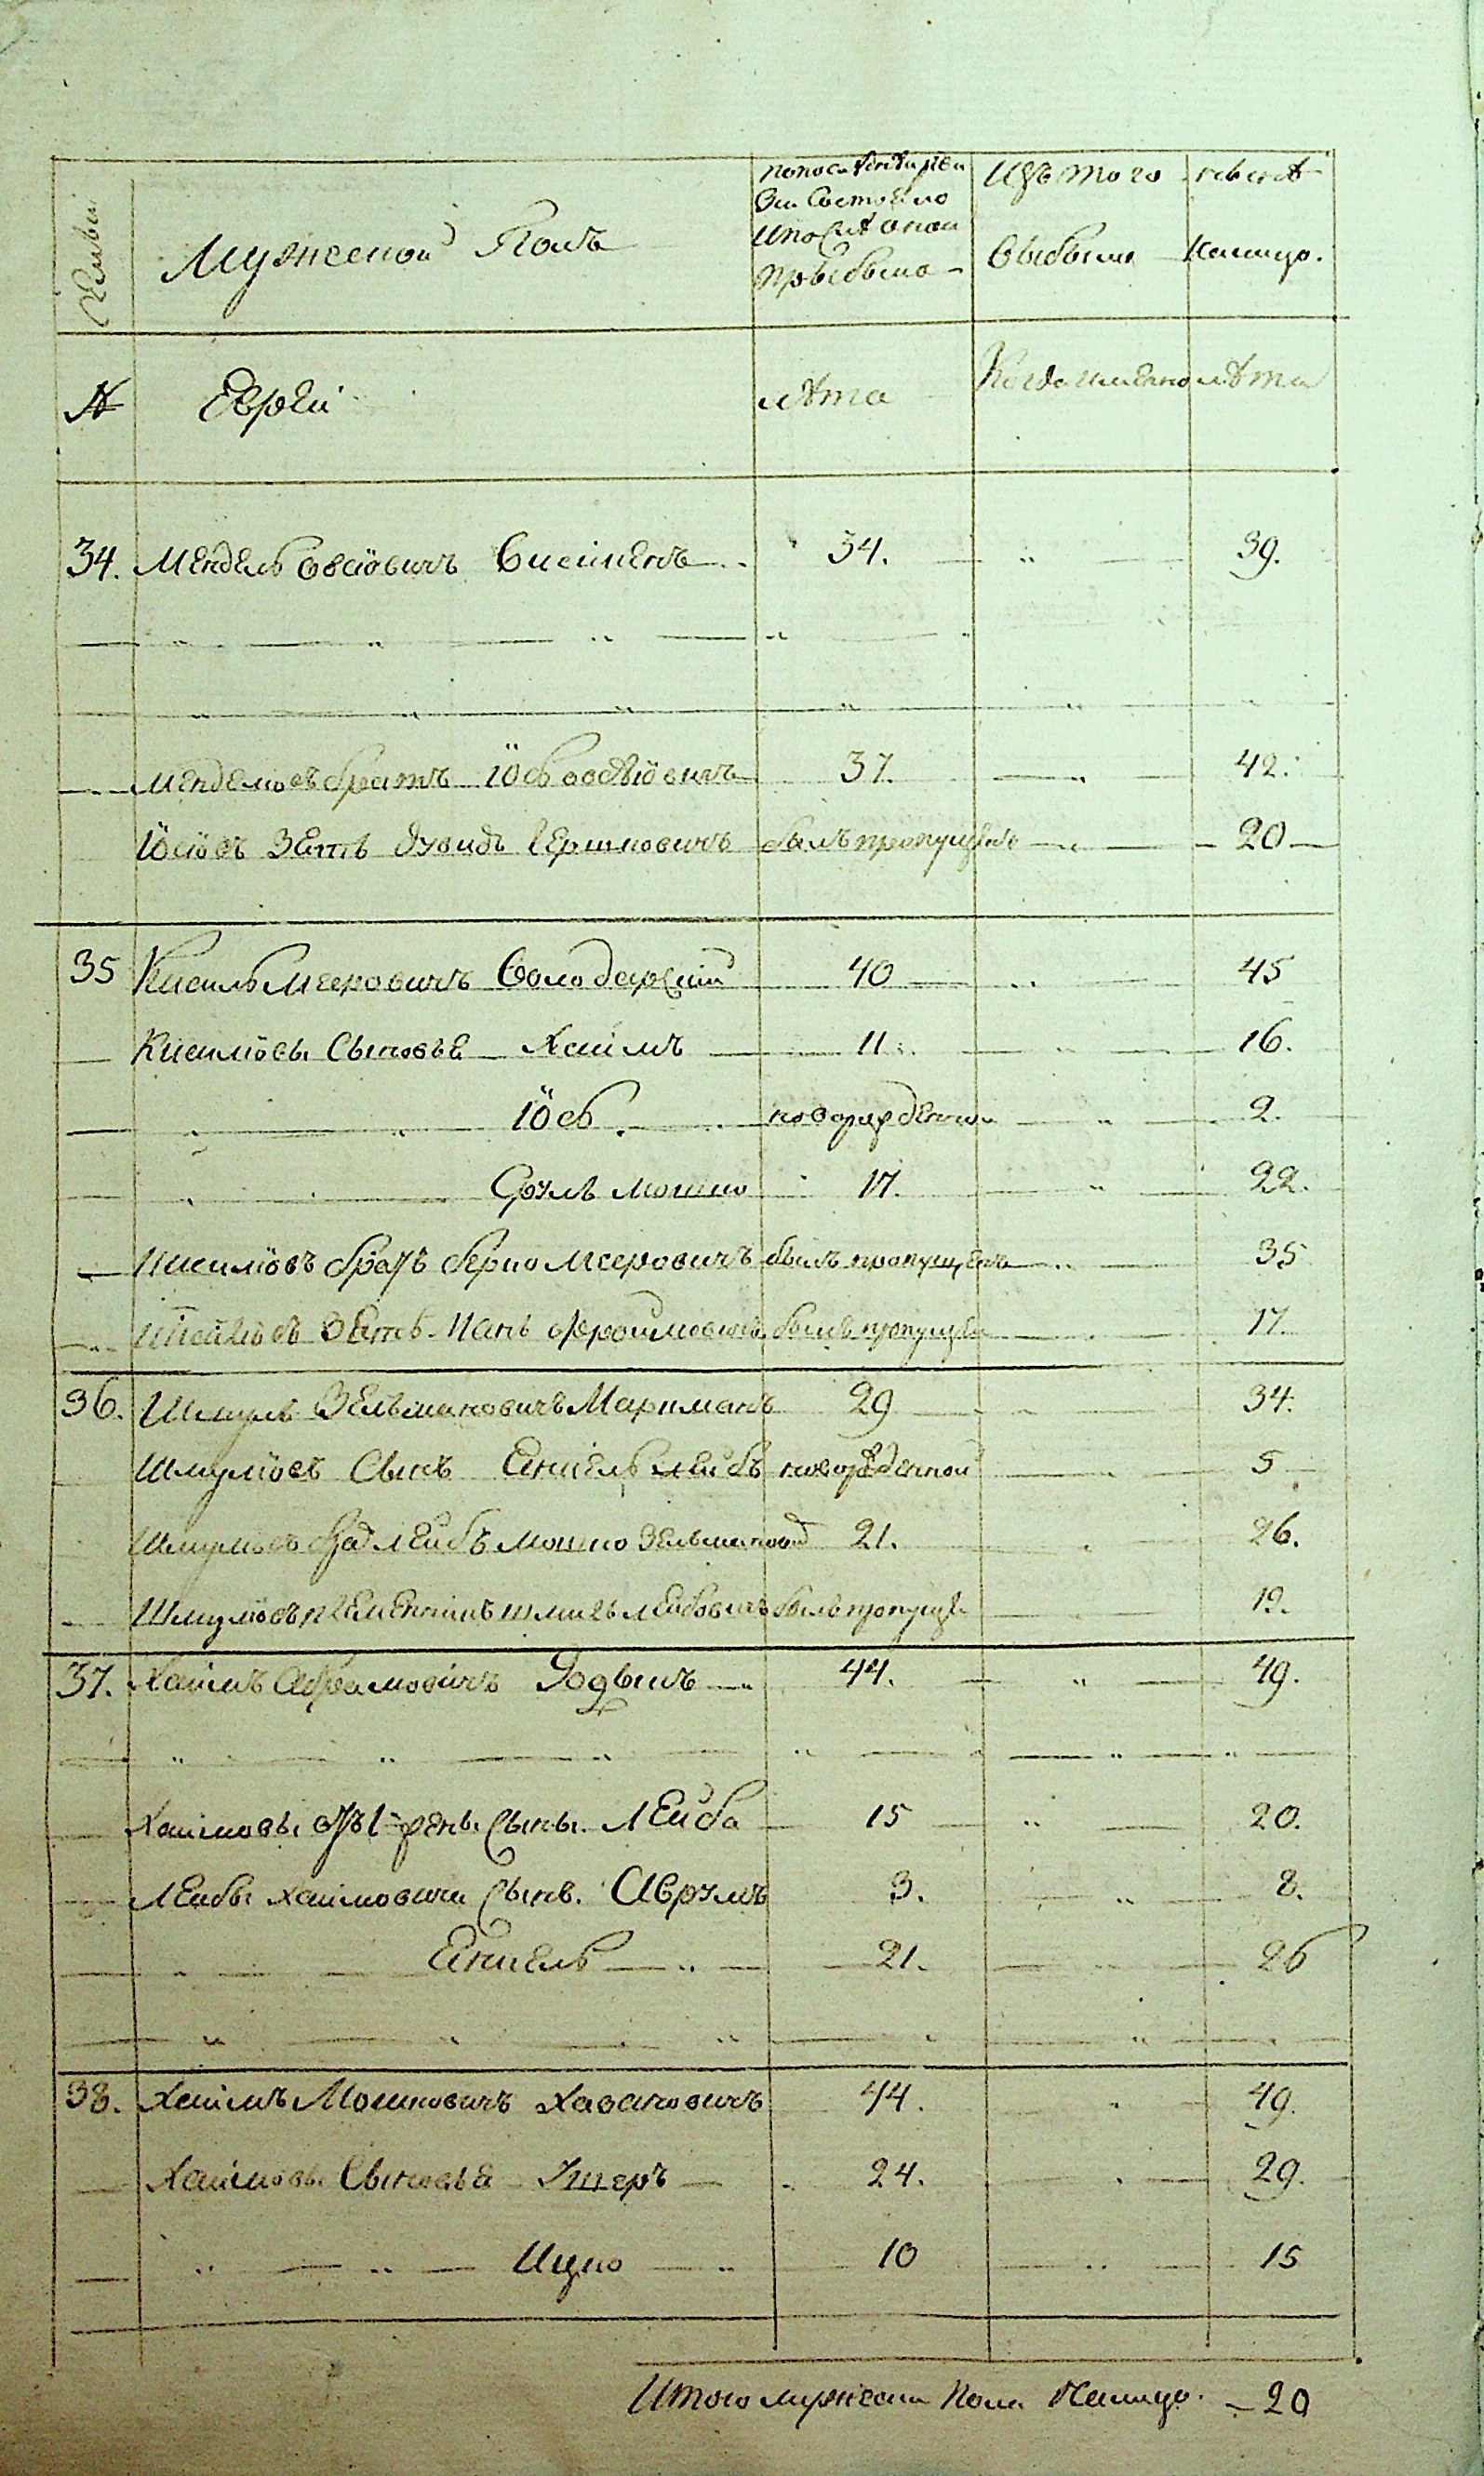 Семьи
Мужескои Полъ
попоследней ревизи состояло ипосле онои прибыло
Изъ того выбыло
ныне налицо.
№ Евреи лѣта Когда именно лѣта
34. Мендель Овсіовичъ 34. " 39.
Менделіовъ братъ Іось овсѣіовичъ 37. " 42.
Іосіовъ Зять Дувидъ Гершковичъ былъ пропущенъ " 20
35 Кисиль Мееровичъ Володарскіи 40 " 45
Кисиліовы Сыновья Хаимъ 11. " 16.
Іось. новорожденнои " 2.
Сруль мошко 17. " 22.
Кисиліовъ братъ берко Мееровичъ былъ пропущенъ " 35
Зять былъ пропущен 17.
36. Шмуль Зельмановичъ Маркманъ 29 " 34.
Шмуліовъ Сынъ Янкель лейбъ новорожденнои " 5
Шмуліовъ лейбъ мошко Зельманов 21. " 26.
Шмуліовъ племенникъ лейбовичъ былъ пропущен 19.
37. Хаимъ Абрамовичъ 44. " 49.
Хаимовы Сыны. Лейба 15 " 20.
Лейбы хаимовича Сынъ. Аврумъ 3. " 8.
Янкель " 21. " 26
38. Хаимъ Мошковичъ Хазановичъ 44. " 49.
Хаимовы Сыновья Ушеръ 24. " 29.
" " Ицко " 10 " 15
Итого мужеска пола налицо. – 20